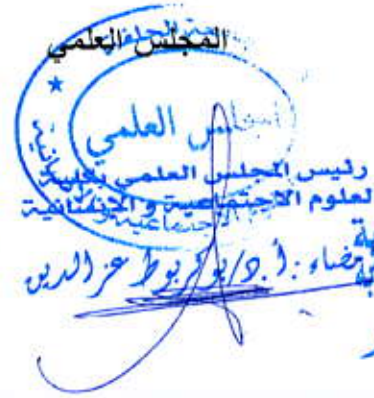 المجلس العلمي
المجلس العلمي
رئيس المجلس العلمي بكلية
العلوم الاجتماعية و الإنسانية
إمضاء : أ.د/بوكربوط عز الدين